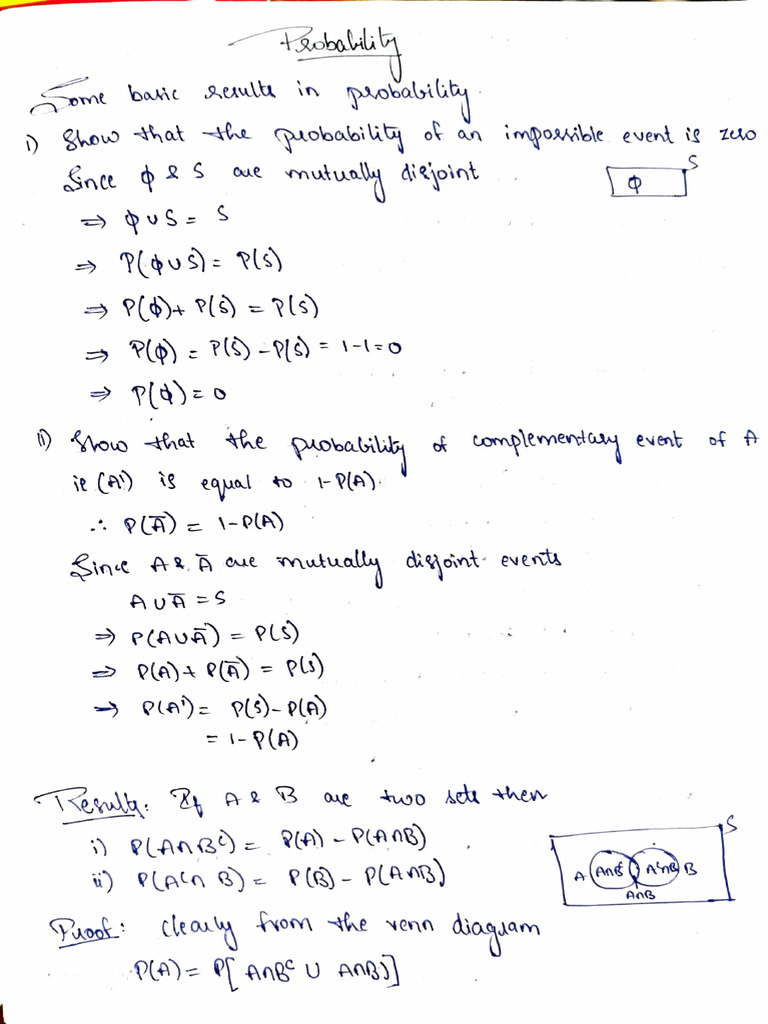 Probability
Some basic results in probability.
i) Show that the probability of an impossible event is zero
Since ϕ & S are mutually disjoint
S
ϕ
⇒ ϕ ∪ S = S
⇒ P(ϕ ∪ S) = P(S)
⇒ P(ϕ) + P(S) = P(S)
⇒ P(ϕ) = P(S) - P(S) = 1-1=0
⇒ P(ϕ) = 0
ii) Show that the probability of complementary event of A
ie (A') is equal to 1-P(A).
∴ P(Ā) = 1-P(A)
Since A & Ā are mutually disjoint events
A ∪ Ā = S
⇒ P(A ∪ Ā) = P(S)
⇒ P(A) + P(Ā) = P(S)
⇒ P(A') = P(S) - P(A)
= 1-P(A)
Results: If A & B are two sets then
i) P(A∩Bᶜ) = P(A) - P(A∩B)
ii) P(Aᶜ∩B) = P(B) - P(A∩B)
S
A A∩Bᶜ Aᶜ∩B B
A∩B
Proof: clearly from the venn diagram
P(A) = P[A∩Bᶜ ∪ A∩B)]